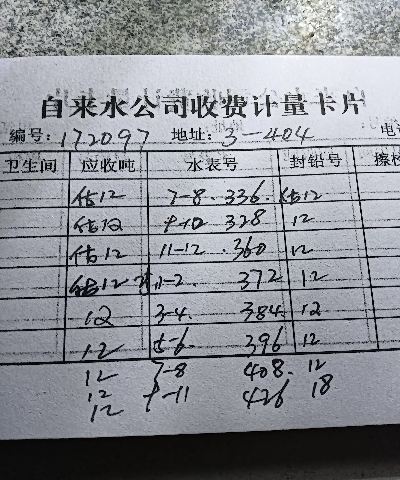 自来水公司收费计量卡片
编号: 172097 地址: 3-404 电话
卫生间 应收吨 水表号 封铅号 擦检
估12 7-8. 336. 估12
估12 9-10 328 12
估12 11-12 360 12
估12 1-2. 372 12
12 3-4. 384. 12
12 5-6 396 12
12 7-8 408. 12
12
12 9-11 426 18